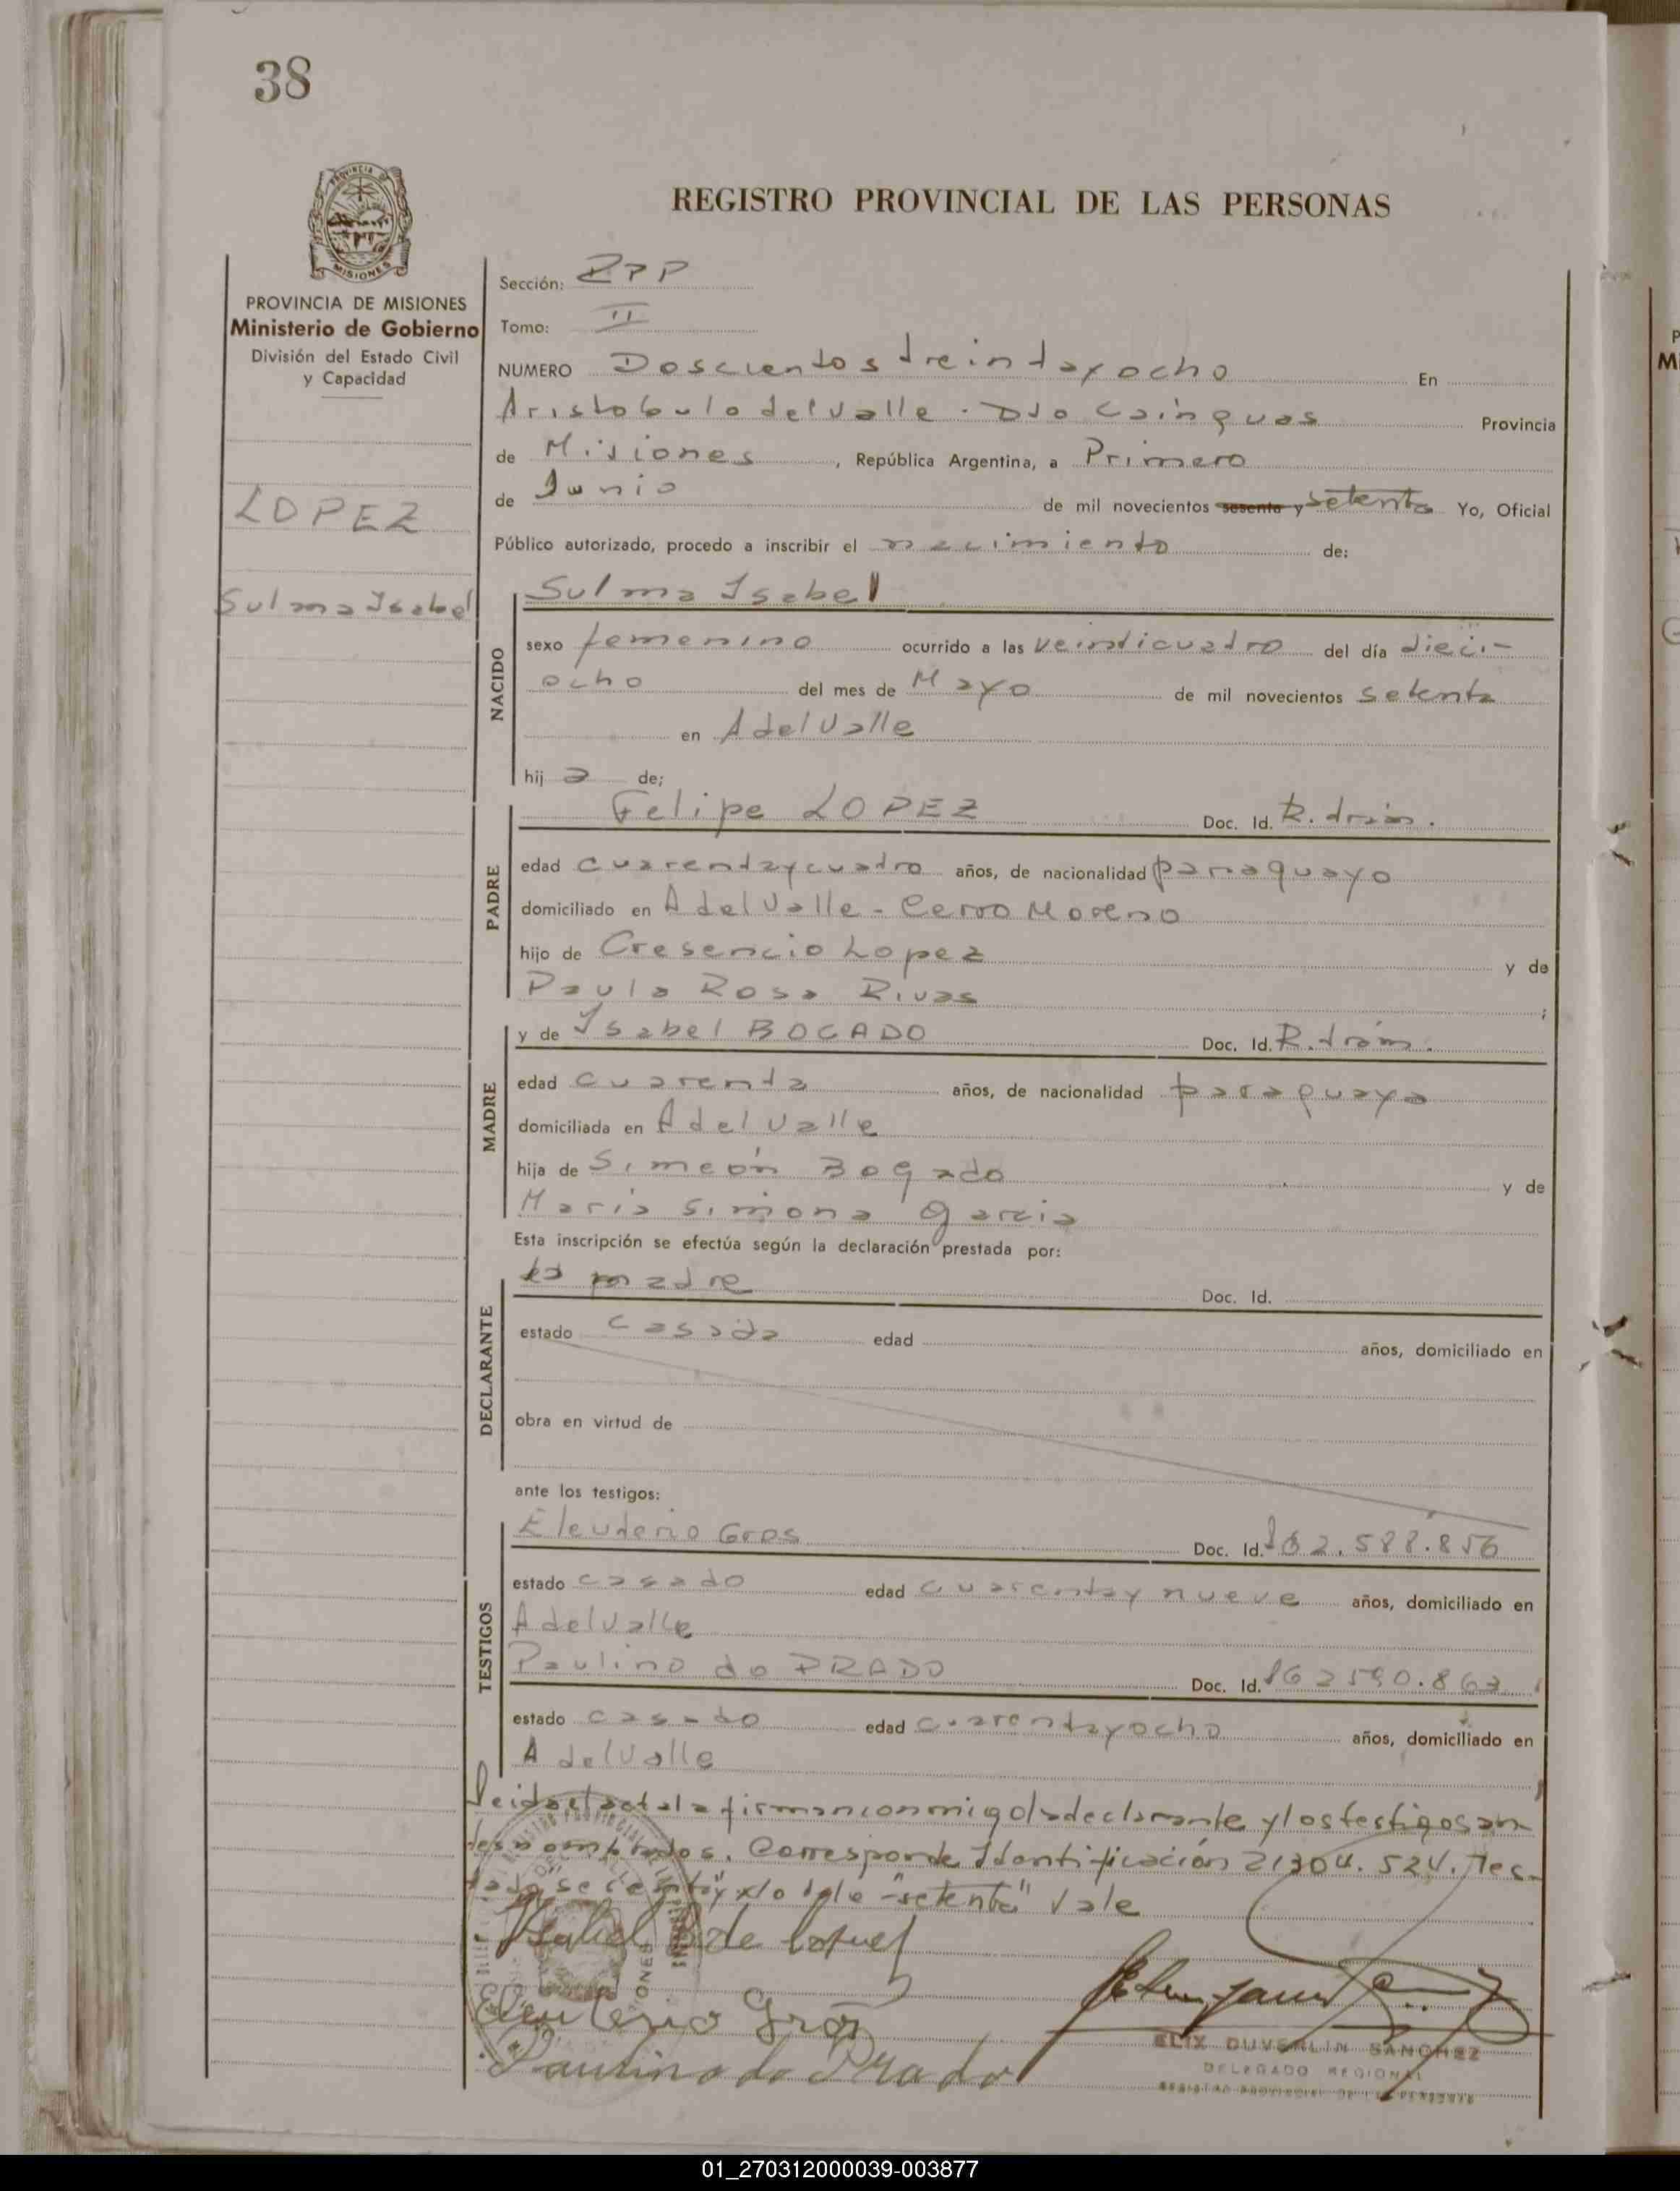 38
PROVINCIA DE
MISIONES
REGISTRO PROVINCIAL DE LAS PERSONAS
PROVINCIA DE MISIONES
Ministerio de Gobierno
División del Estado Civil
y Capacidad
LOPEZ
Sulma Isabel
Sección: RPP
Tomo: II
NUMERO Doscientos treintayocho En
Aristobulo del Valle - Dto Cainguas Provincia
de Misiones, República Argentina, a Primero
de Junio de mil novecientos sesenta y setenta Yo, Oficial
Público autorizado, procedo a inscribir el nacimiento de:
NACIDO
Sulma Isabel
sexo femenino ocurrido a las veinticuatro del día dieci-
ocho del mes de Mayo de mil novecientos setenta
en A del Valle
hija de;
PADRE
Felipe LOPEZ Doc. Id. R. trám.
edad cuarentaycuatro años, de nacionalidad paraguayo
domiciliado en A del Valle - Cerro Moreno
hijo de Cresencio Lopez y de
Paula Rosa Rivas ;
MADRE
y de Isabel BOGADO Doc. Id. R. trám.
edad cuarenta años, de nacionalidad paraguaya
domiciliada en A del Valle
hija de Simeón Bogado y de
Maria Simona Garcia
Esta inscripción se efectúa según la declaración prestada por:
DECLARANTE
la madre Doc. Id.
estado casada edad años, domiciliado en
obra en virtud de
ante los testigos:
TESTIGOS
Eleuterio Gros Doc. Id. 2.588.856
estado casado edad cuarentay nueve años, domiciliado en
A del Valle
Paulino do PRADO Doc. Id.
estado casado edad cuarentayocho años, domiciliado en
A del Valle
Leida el acta la firman conmigo la declarante y los testigos an-
tes nombrados. Corresponde Identificación 21304.524. Tes-
tado "sesenta y" "setenta" Vale
Isabel B de
Eleuterio Gros
Paulino do Prado
ELIX DUVERLIN SANCHEZ
DELEGADO REGIONAL
REGISTRO PROVINCIAL DE LAS PERSONAS
01_270312000039-003877